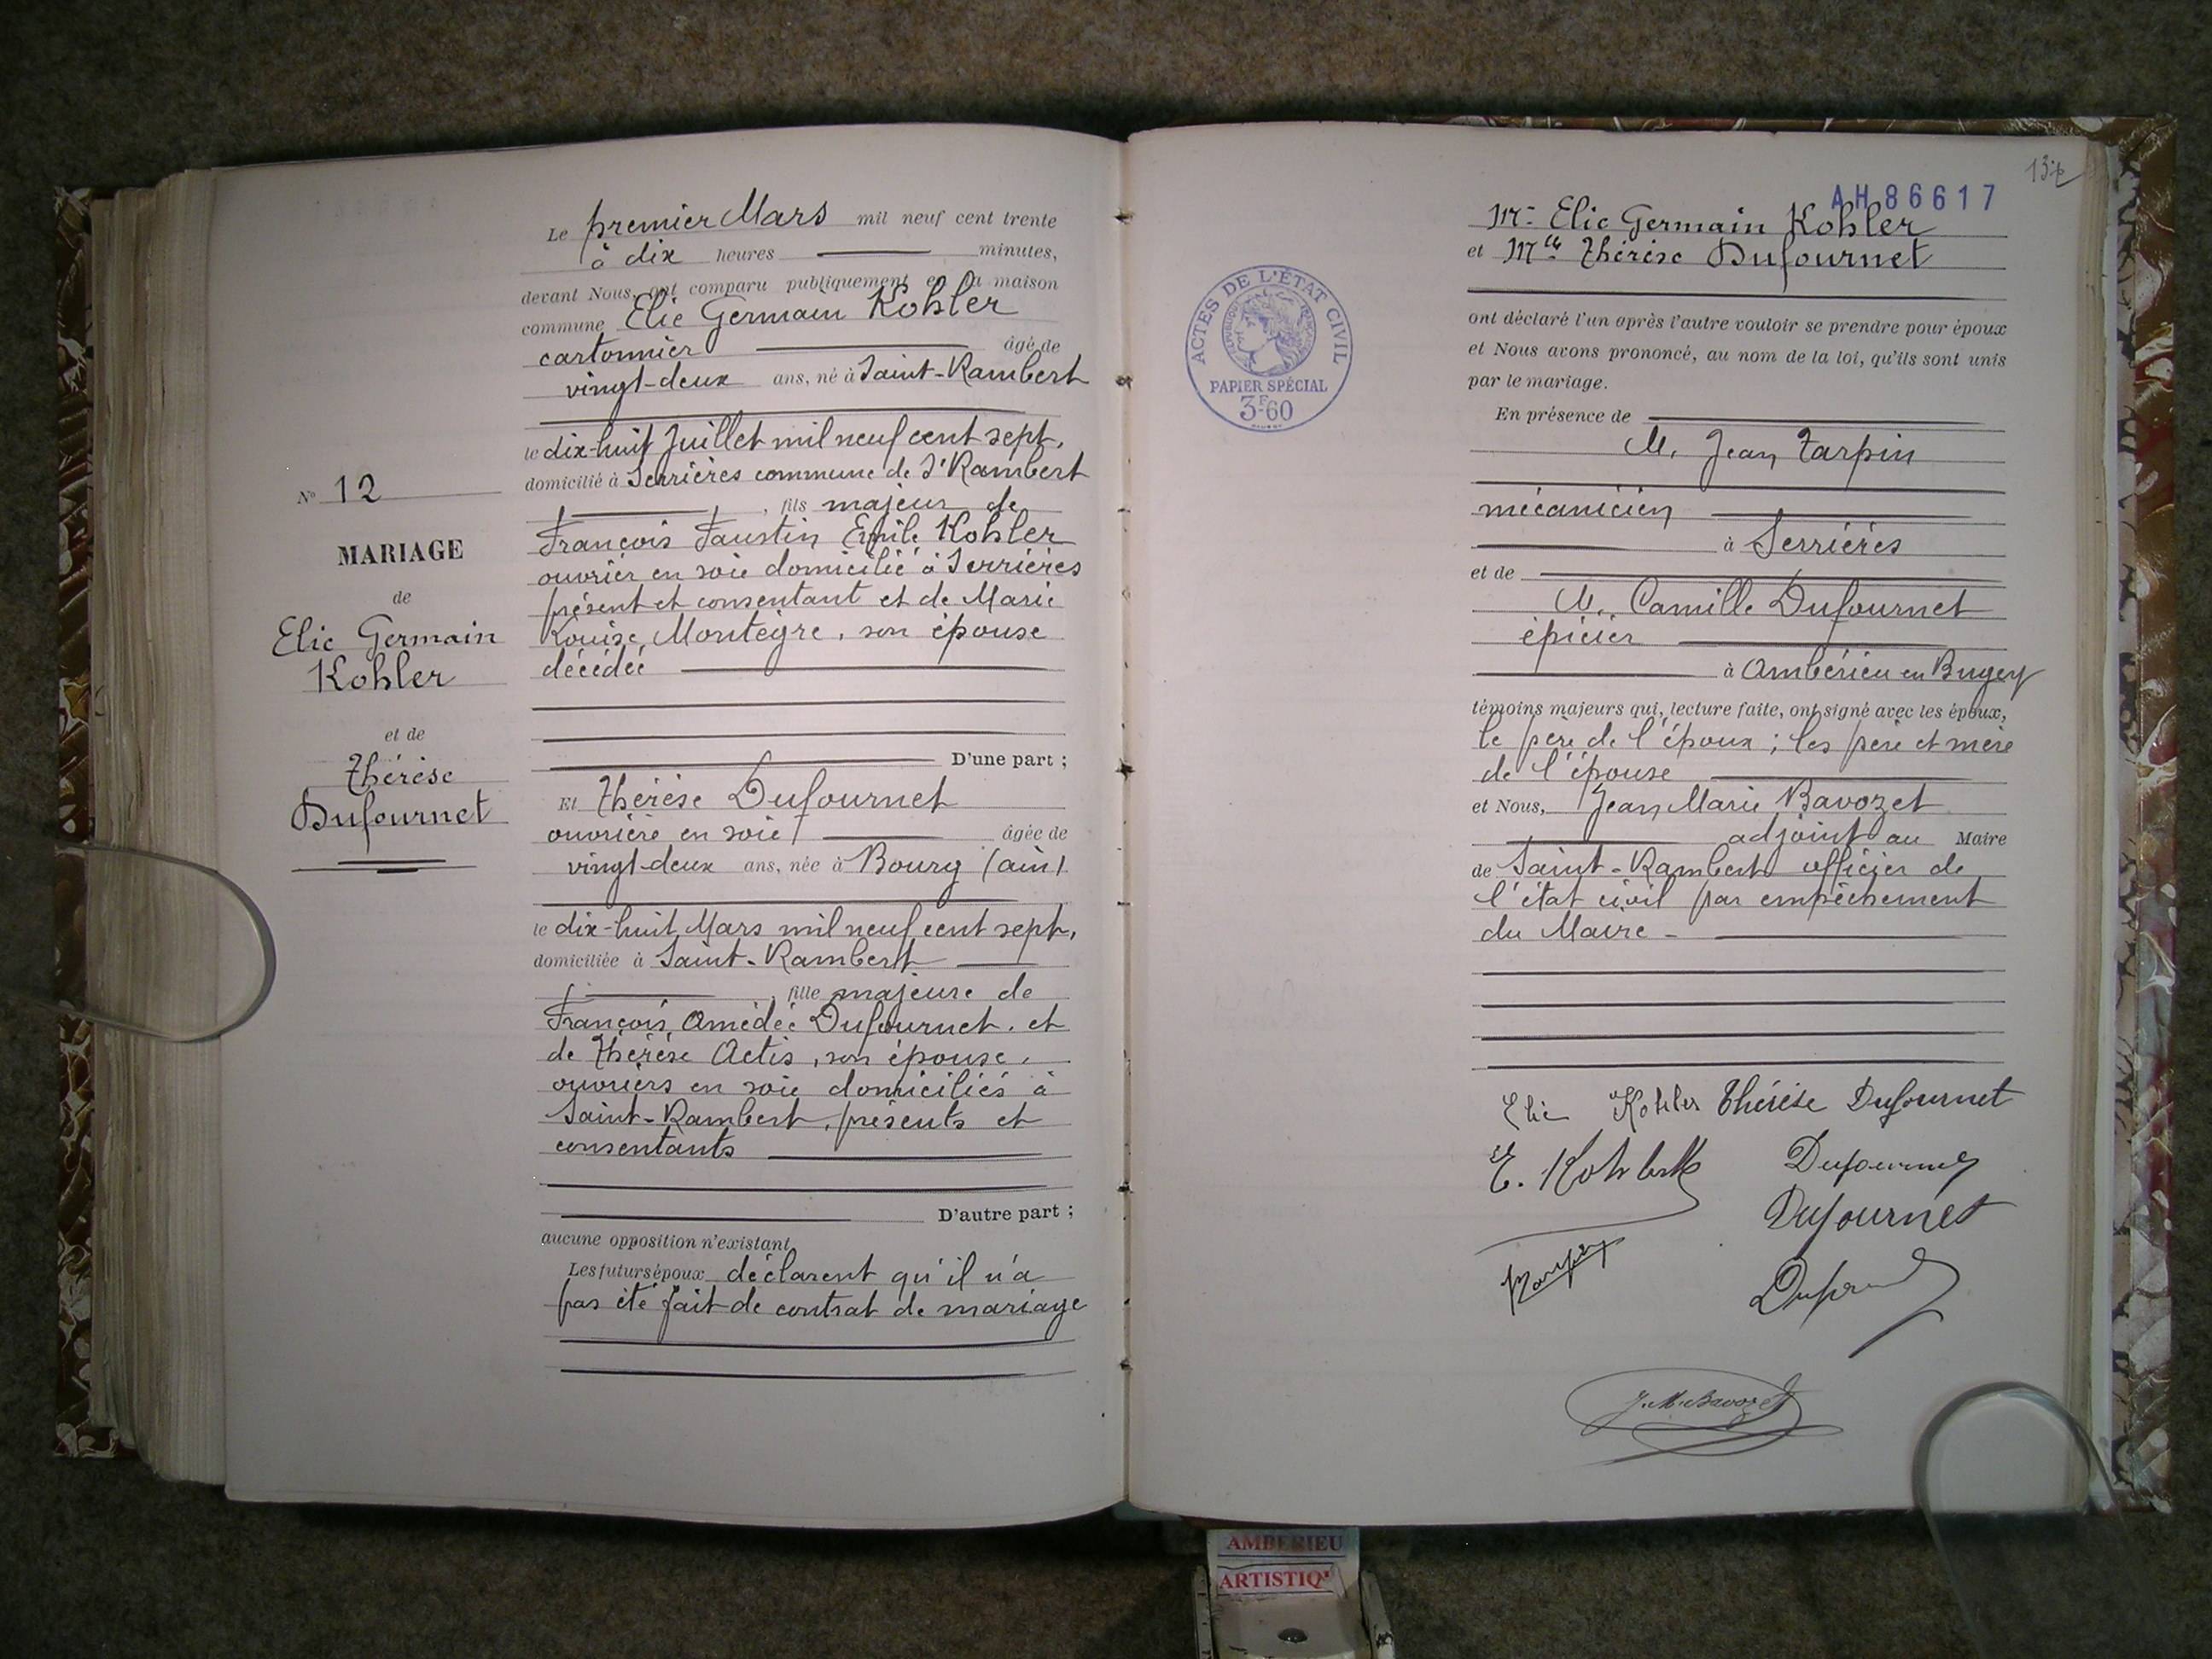 Le premier Mars mil neuf cent trente
à dix heures minutes,
devant Nous, ont comparu publiquement en la maison
commune Elie Germain Kohler
cartonnier âgé de
vingt-deux ans, né à Saint-Rambert
le dix-huit Juillet mil neuf cent sept,
domicilié à Serrières commune de St Rambert
, fils majeur de
François Faustin Emile Kohler
ouvrier en soie domicilié à Serrières
présent et consentant et de Marie
Louise Montègre, son épouse
décédée
D'une part ;
Et Thérèse Dufournet
ouvrière en soie âgée de
vingt-deux ans, née à Bourg (Ain)
le dix-huit Mars mil neuf cent sept,
domiciliée à Saint-Rambert
, fille majeure de
François Amédée Dufournet. et
de Thérèse Actis, son épouse,
ouvriers en soie domiciliés à
Saint-Rambert, présents et
consentants
D'autre part ;
aucune opposition n'existant
Les futurs époux déclarent qu'il n'a
pas été fait de contrat de mariage
No 12
MARIAGE
de
Elie Germain
Kohler
et de
Thérèse
Dufournet
AH 86617
Mr Elie Germain Kohler
et Mlle Thérèse Dufournet
ont déclaré l'un après l'autre vouloir se prendre pour époux
et Nous avons prononcé, au nom de la loi, qu'ils sont unis
par le mariage.
En présence de
M. Jean Tarpin
mécanicien
à Serrières
et de
M. Camille Dufournet
épicier
à Ambérieu en Bugey
témoins majeurs qui, lecture faite, ont signé avec les époux,
le père de l'époux ; les père et mère
de l'épouse
et Nous, Jean Marie Bavozet
adjoint au Maire
de Saint-Rambert officier de
l'état civil par empêchement
du Maire -
Elie Kohler Thérèse Dufournet
E. Kohler Dufournet
Dufournet
J. M. Bavozet
ACTES DE L'ÉTAT CIVIL
RÉPUBLIQUE FRANÇAISE
PAPIER SPÉCIAL
3F60
AMBERIEU
ARTISTIQ